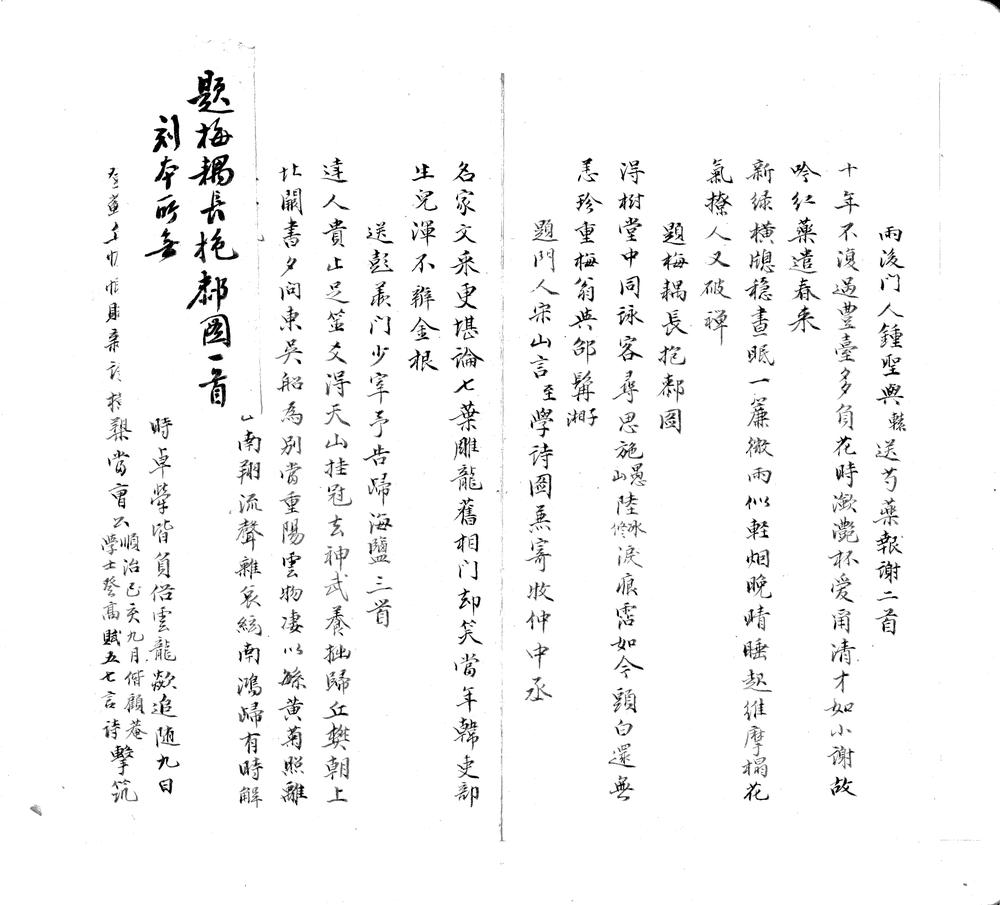 雨後门人鍾聖輿轅送芍藥報謝二首
十年不復過豐臺多負花時瀲灧杯爱甬清才如小謝故
吟红藥遣春來
新绿横牕穏晝眠一簾微雨似軽烟晚晴睡起维摩榻花
氣撩人又破禅
題梅耦長抱鄰圖
淂樹堂中同詠客尋思施愚山陸冰修淚痕霑如今頭白還無
恙珍重梅翁與邵髯湘子
題門人宋山言至学诗圖蕪寄牧仲中丞
名家文采更堪論七葉雕龍舊相门却笑當年韓吏部
生兒渾不辨金根
送彭羨门少宰予告歸海鹽三首
達人貴止足筮爻淂天山挂冠去神武養拙歸丘樊朝上
北闕書夕问東吴船為別當重陽雲物凄以緐黄菊照離
南翔流聲雜哀絃南鴻歸有時解
題梅耦長抱鄰圖一首
刻本所無
時卓犖皆負俗雲龍欻追随九日
槩當曺公順治己亥九月偕顧菴学士登高賦五七言诗擊筑